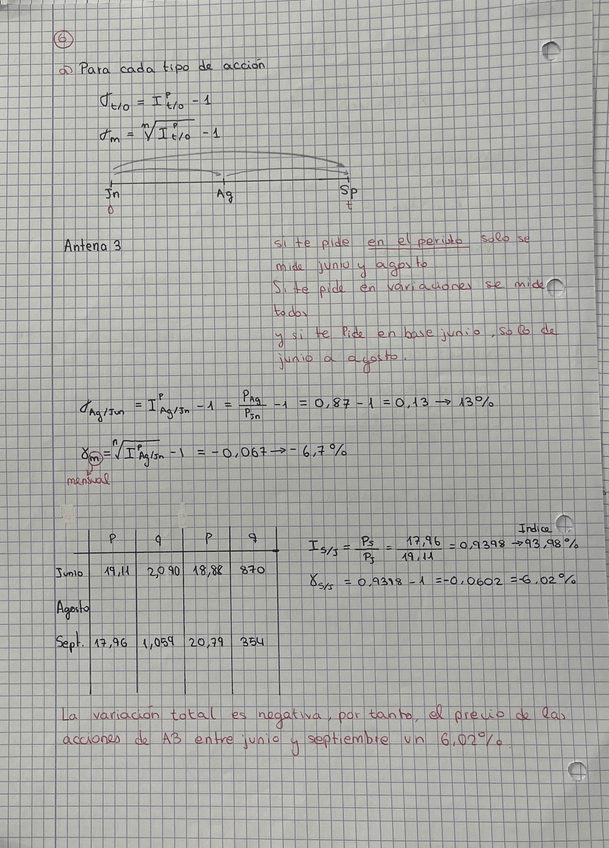 6
a) Para cada tipo de acción
σt/0 = I^P t/0 - 1
σm = ⁿ√(I^P t/0) - 1
Jn Ag Sp
0 t
Antena 3
si te pide en el perido solo se
mide junio y agosto
Si te pide en variaciones se mide
todos
y si te Pide en base junio, solo de
junio a agosto.
σAg/Jun = I^P Ag/Jn - 1 = PAg/PJn - 1 = 0,87 - 1 = 0,13 → 13%
γm = ⁿ√(I^P Ag/Jn) - 1 = -0,067 → -6,7%
mensual
P q P q
Junio 19,11 2,090 18,88 870
Agosto
Sept. 17,96 1,059 20,79 354
Indice
I S/J = PS/PJ = 17,96/19,11 = 0,9398 → 93,98%
γS/J = 0,9398 - 1 = -0,0602 = -6,02%
La variación total es negativa, por tanto, el precio de las
acciones de A3 entre junio y septiembre un 6,02%